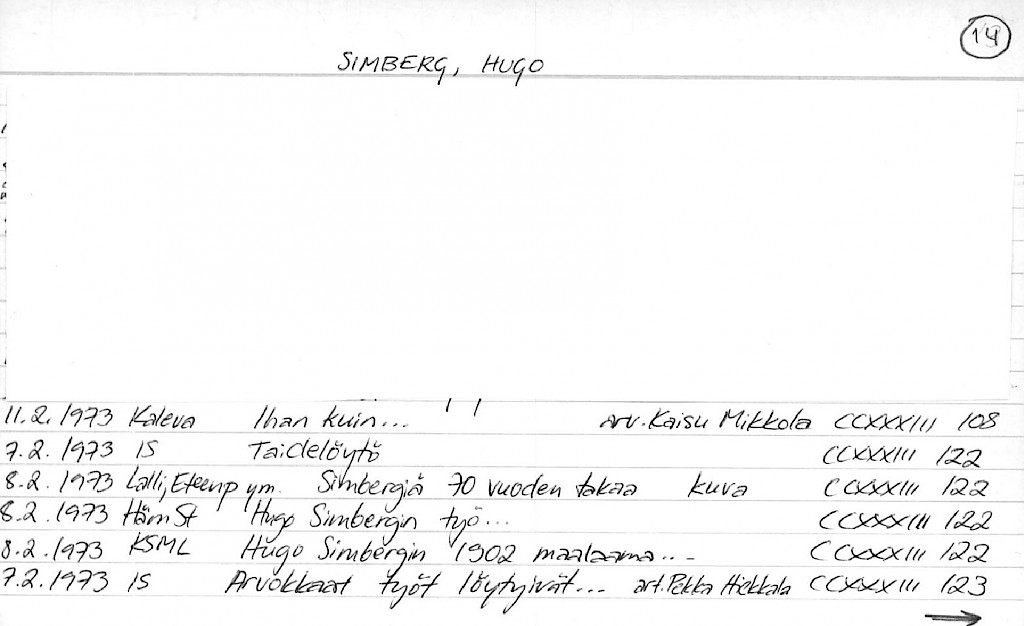 14
SIMBERG, HUGO
11.2.1973 Kaleva Ihan kuin... arv. Kaisu Mikkola CCXXXIII 108
7.2.1973 IS Taidelöytö CCXXXIII 122
8.2.1973 Lalli, Eteenp ym. Simbergiä 70 vuoden takaa kuva CCXXXIII 122
8.2.1973 Häm St Hugo Simbergin työ... CCXXXIII 122
8.2.1973 KSML Hugo Simbergin 1902 maalaama... CCXXXIII 122
7.2.1973 IS Arvokkaat työt löytyivät... art. Pekka Hiekkala CCXXXIII 123